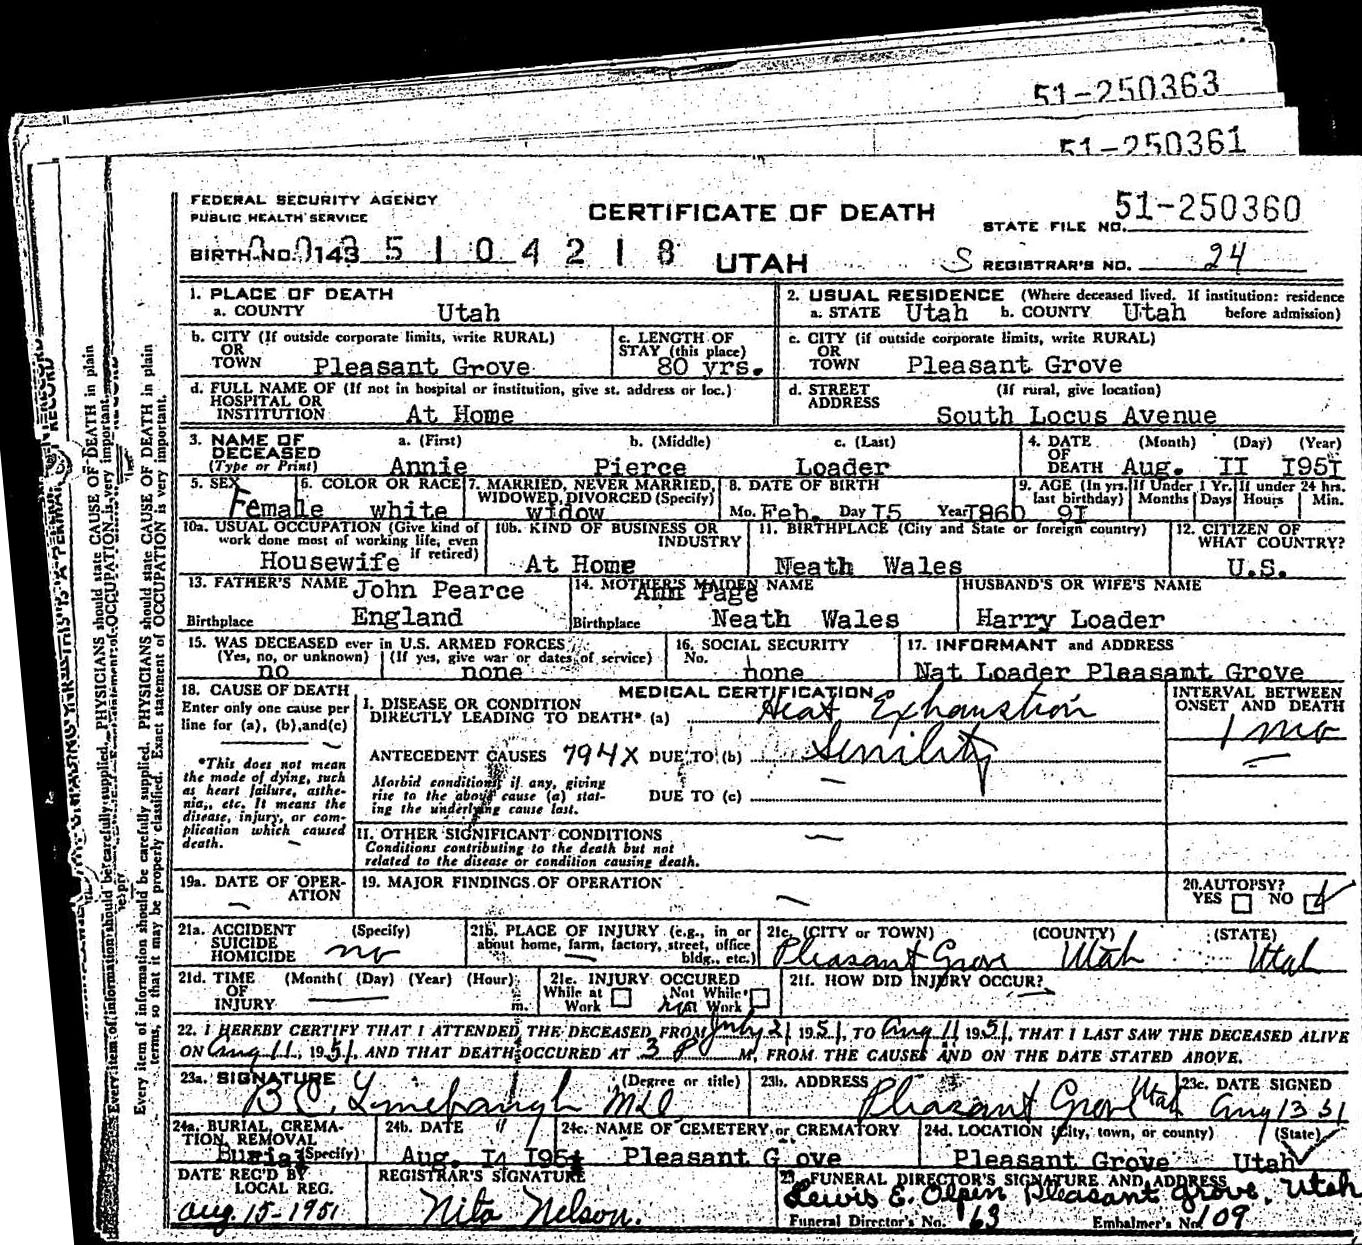 51-250363
51-250361
FEDERAL SECURITY AGENCY
PUBLIC HEALTH SERVICE
CERTIFICATE OF DEATH
STATE FILE NO. 51-250360
BIRTH NO. 143 5 1 0 4 2 1 8
UTAH
S REGISTRAR'S NO. 24
1. PLACE OF DEATH
a. COUNTY Utah
2. USUAL RESIDENCE (Where deceased lived. If institution: residence before admission)
a. STATE Utah b. COUNTY Utah
b. CITY (If outside corporate limits, write RURAL) OR TOWN Pleasant Grove
c. LENGTH OF STAY (this place) 80 yrs.
c. CITY (if outside corporate limits, write RURAL) OR TOWN Pleasant Grove
d. FULL NAME OF (If not in hospital or institution, give st. address or loc.) HOSPITAL OR INSTITUTION At Home
d. STREET ADDRESS (If rural, give location) South Locus Avenue
3. NAME OF DECEASED (Type or Print) a. (First) b. (Middle) c. (Last)
Annie Pierce Loader
4. DATE OF DEATH (Month) (Day) (Year)
Aug. II I95I
5. SEX Female
6. COLOR OR RACE white
7. MARRIED, NEVER MARRIED, WIDOWED, DIVORCED (Specify) widow
8. DATE OF BIRTH Mo. Feb. Day I5 Year I860
9. AGE (In yrs. last birthday) 9I If Under 1 Yr. Months Days If under 24 hrs. Hours Min.
10a. USUAL OCCUPATION (Give kind of work done most of working life, even if retired) Housewife
10b. KIND OF BUSINESS OR INDUSTRY At Home
11. BIRTHPLACE (City and State or foreign country) Neath Wales
12. CITIZEN OF WHAT COUNTRY? U.S.
13. FATHER'S NAME John Pearce
Birthplace England
14. MOTHER'S MAIDEN NAME Ann Page
Birthplace Neath Wales
HUSBAND'S OR WIFE'S NAME
Harry Loader
15. WAS DECEASED ever in U.S. ARMED FORCES
(Yes, no, or unknown) no (If yes, give war or dates of service) none
16. SOCIAL SECURITY No. none
17. INFORMANT and ADDRESS
Nat Loader Pleasant Grove
18. CAUSE OF DEATH
Enter only one cause per line for (a), (b), and (c)
*This does not mean the mode of dying, such as heart failure, asthenia, etc. It means the disease, injury, or complication which caused death.
MEDICAL CERTIFICATION
I. DISEASE OR CONDITION DIRECTLY LEADING TO DEATH* (a) Heat Exhaustion
INTERVAL BETWEEN ONSET AND DEATH
1 mo
ANTECEDENT CAUSES 794X DUE TO (b) Senility
Morbid conditions, if any, giving rise to the above cause (a) stating the underlying cause last.
DUE TO (c)
II. OTHER SIGNIFICANT CONDITIONS
Conditions contributing to the death but not related to the disease or condition causing death.
19a. DATE OF OPERATION
19. MAJOR FINDINGS OF OPERATION
20. AUTOPSY? YES NO
21a. ACCIDENT SUICIDE HOMICIDE (Specify) no
21b. PLACE OF INJURY (e.g., in or about home, farm, factory, street, office bldg., etc.)
21c. (CITY or TOWN) (COUNTY) (STATE)
Pleasant Grove Utah Utah
21d. TIME OF INJURY (Month) (Day) (Year) (Hour) m.
21e. INJURY OCCURED While at Work Not While Work
21f. HOW DID INJURY OCCUR?
22. I HEREBY CERTIFY THAT I ATTENDED THE DECEASED FROM July 21 1951, TO Aug 11 1951, THAT I LAST SAW THE DECEASED ALIVE
ON Aug 11, 1951, AND THAT DEATH OCCURED AT 3 P M. FROM THE CAUSES AND ON THE DATE STATED ABOVE.
23a. SIGNATURE (Degree or title)
B C Linebaugh MD
23b. ADDRESS Pleasant Grove Utah
23c. DATE SIGNED Aug 13 51
24a. BURIAL, CREMATION, REMOVAL (Specify) Burial
24b. DATE Aug. I4 I95I
24c. NAME OF CEMETERY or CREMATORY Pleasant G ove
24d. LOCATION (City, town, or county) (State)
Pleasant Grove Utah
DATE REC'D BY LOCAL REG. Aug. 15-1951
REGISTRAR'S SIGNATURE Nita Nelson.
25. FUNERAL DIRECTOR'S SIGNATURE AND ADDRESS
Lewis E. Olpin Pleasant Grove, Utah
Funeral Director's No. 63 Embalmer's No. 109
Every item of information should be carefully supplied. PHYSICIANS should state CAUSE OF DEATH in plain
terms, so that it may be properly classified. Exact statement of OCCUPATION is very important.